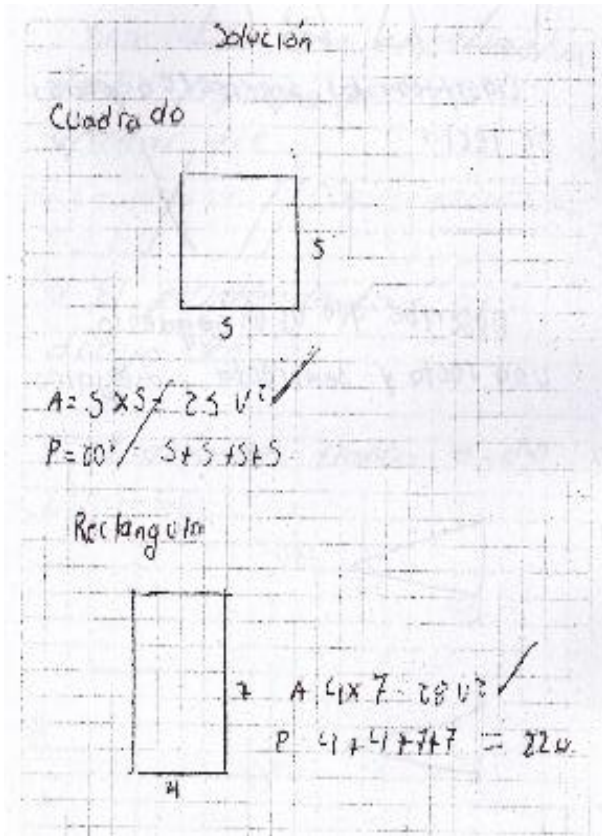 Solución
Cuadrado
5
5
A= 5 x 5 = 25 U²
5+5+5+5
Rectangulo
7
A 4x 7 = 28 U²
P 4+4+7+7 = 22u
4